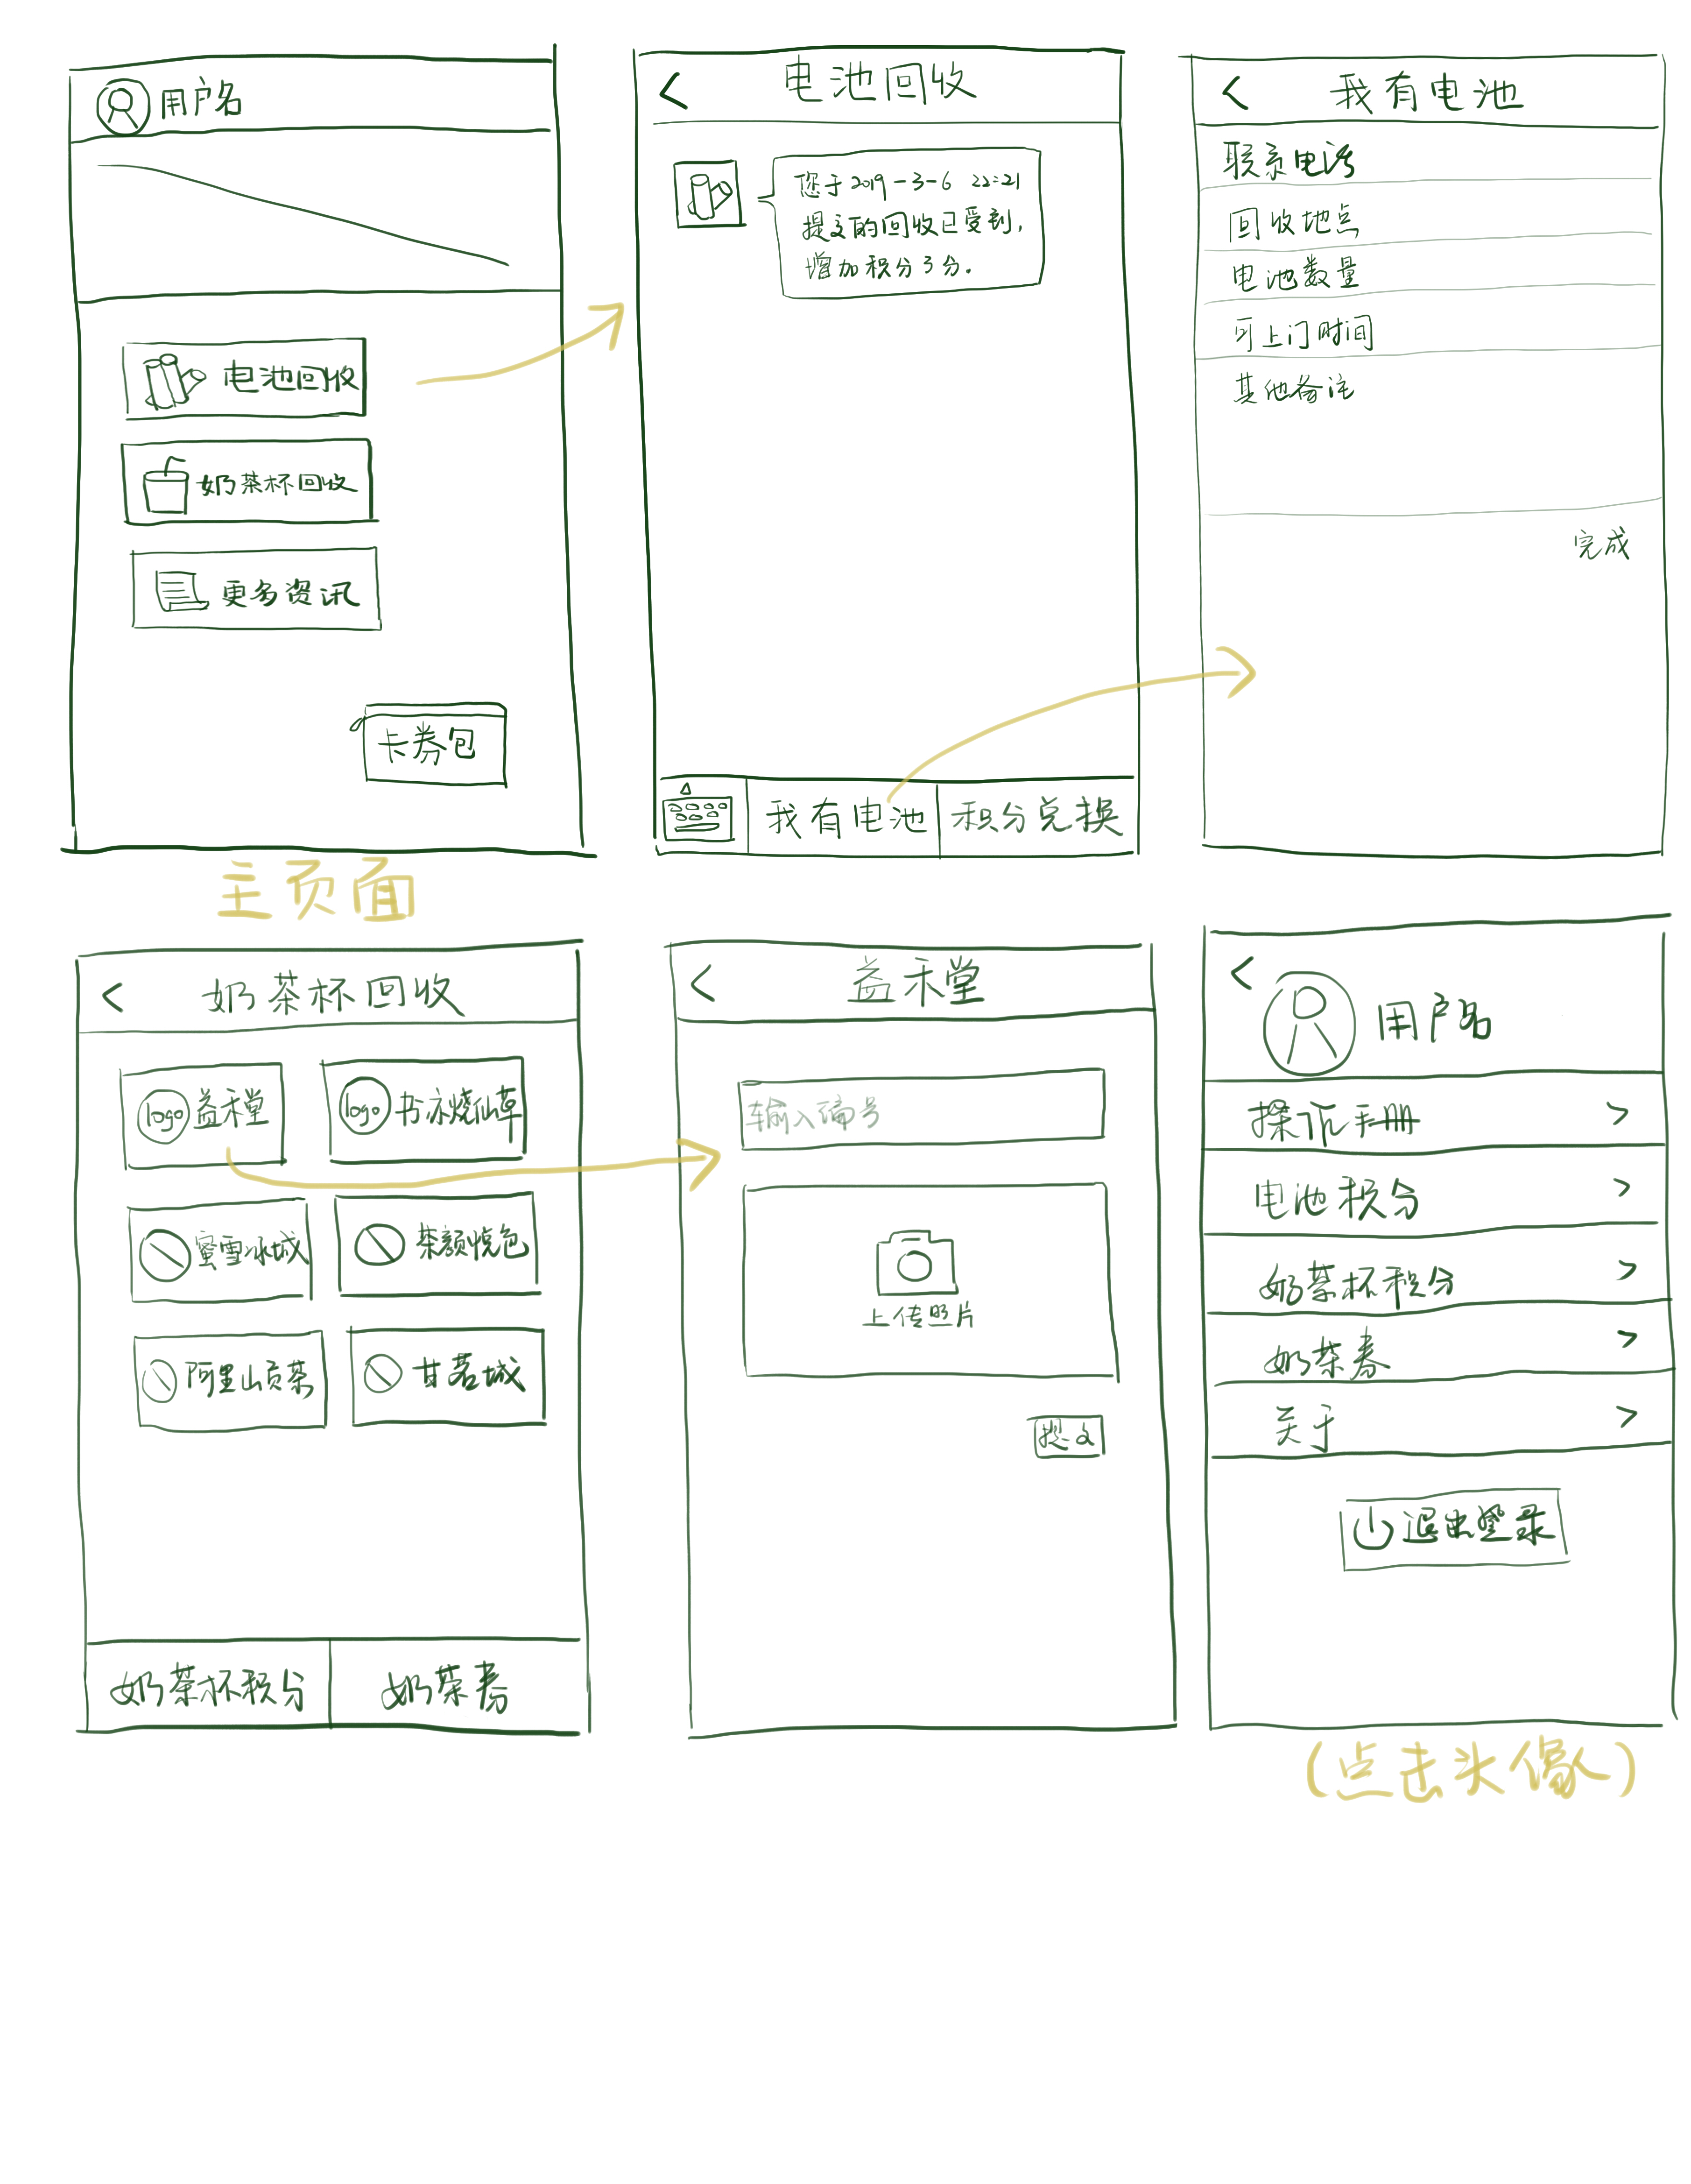 用户名
电池回收
奶茶杯回收
更多资讯
卡券包
主页面
电池回收
您于2019-3-6 22:21
提交的回收已受到,
增加积分3分.
我有电池
积分兑换
我有电池
联系电话
回收地点
电池数量
可上门时间
其他备注
完成
奶茶杯回收
logo 益禾堂
logo 书亦烧仙草
蜜雪冰城
茶颜悦色
阿里山贡茶
甘茗城
奶茶杯积分
奶茶券
益禾堂
输入编号
上传照片
提交
用户名
操作手册
电池积分
奶茶杯积分
奶茶券
关于
退出登录
(点击头像)